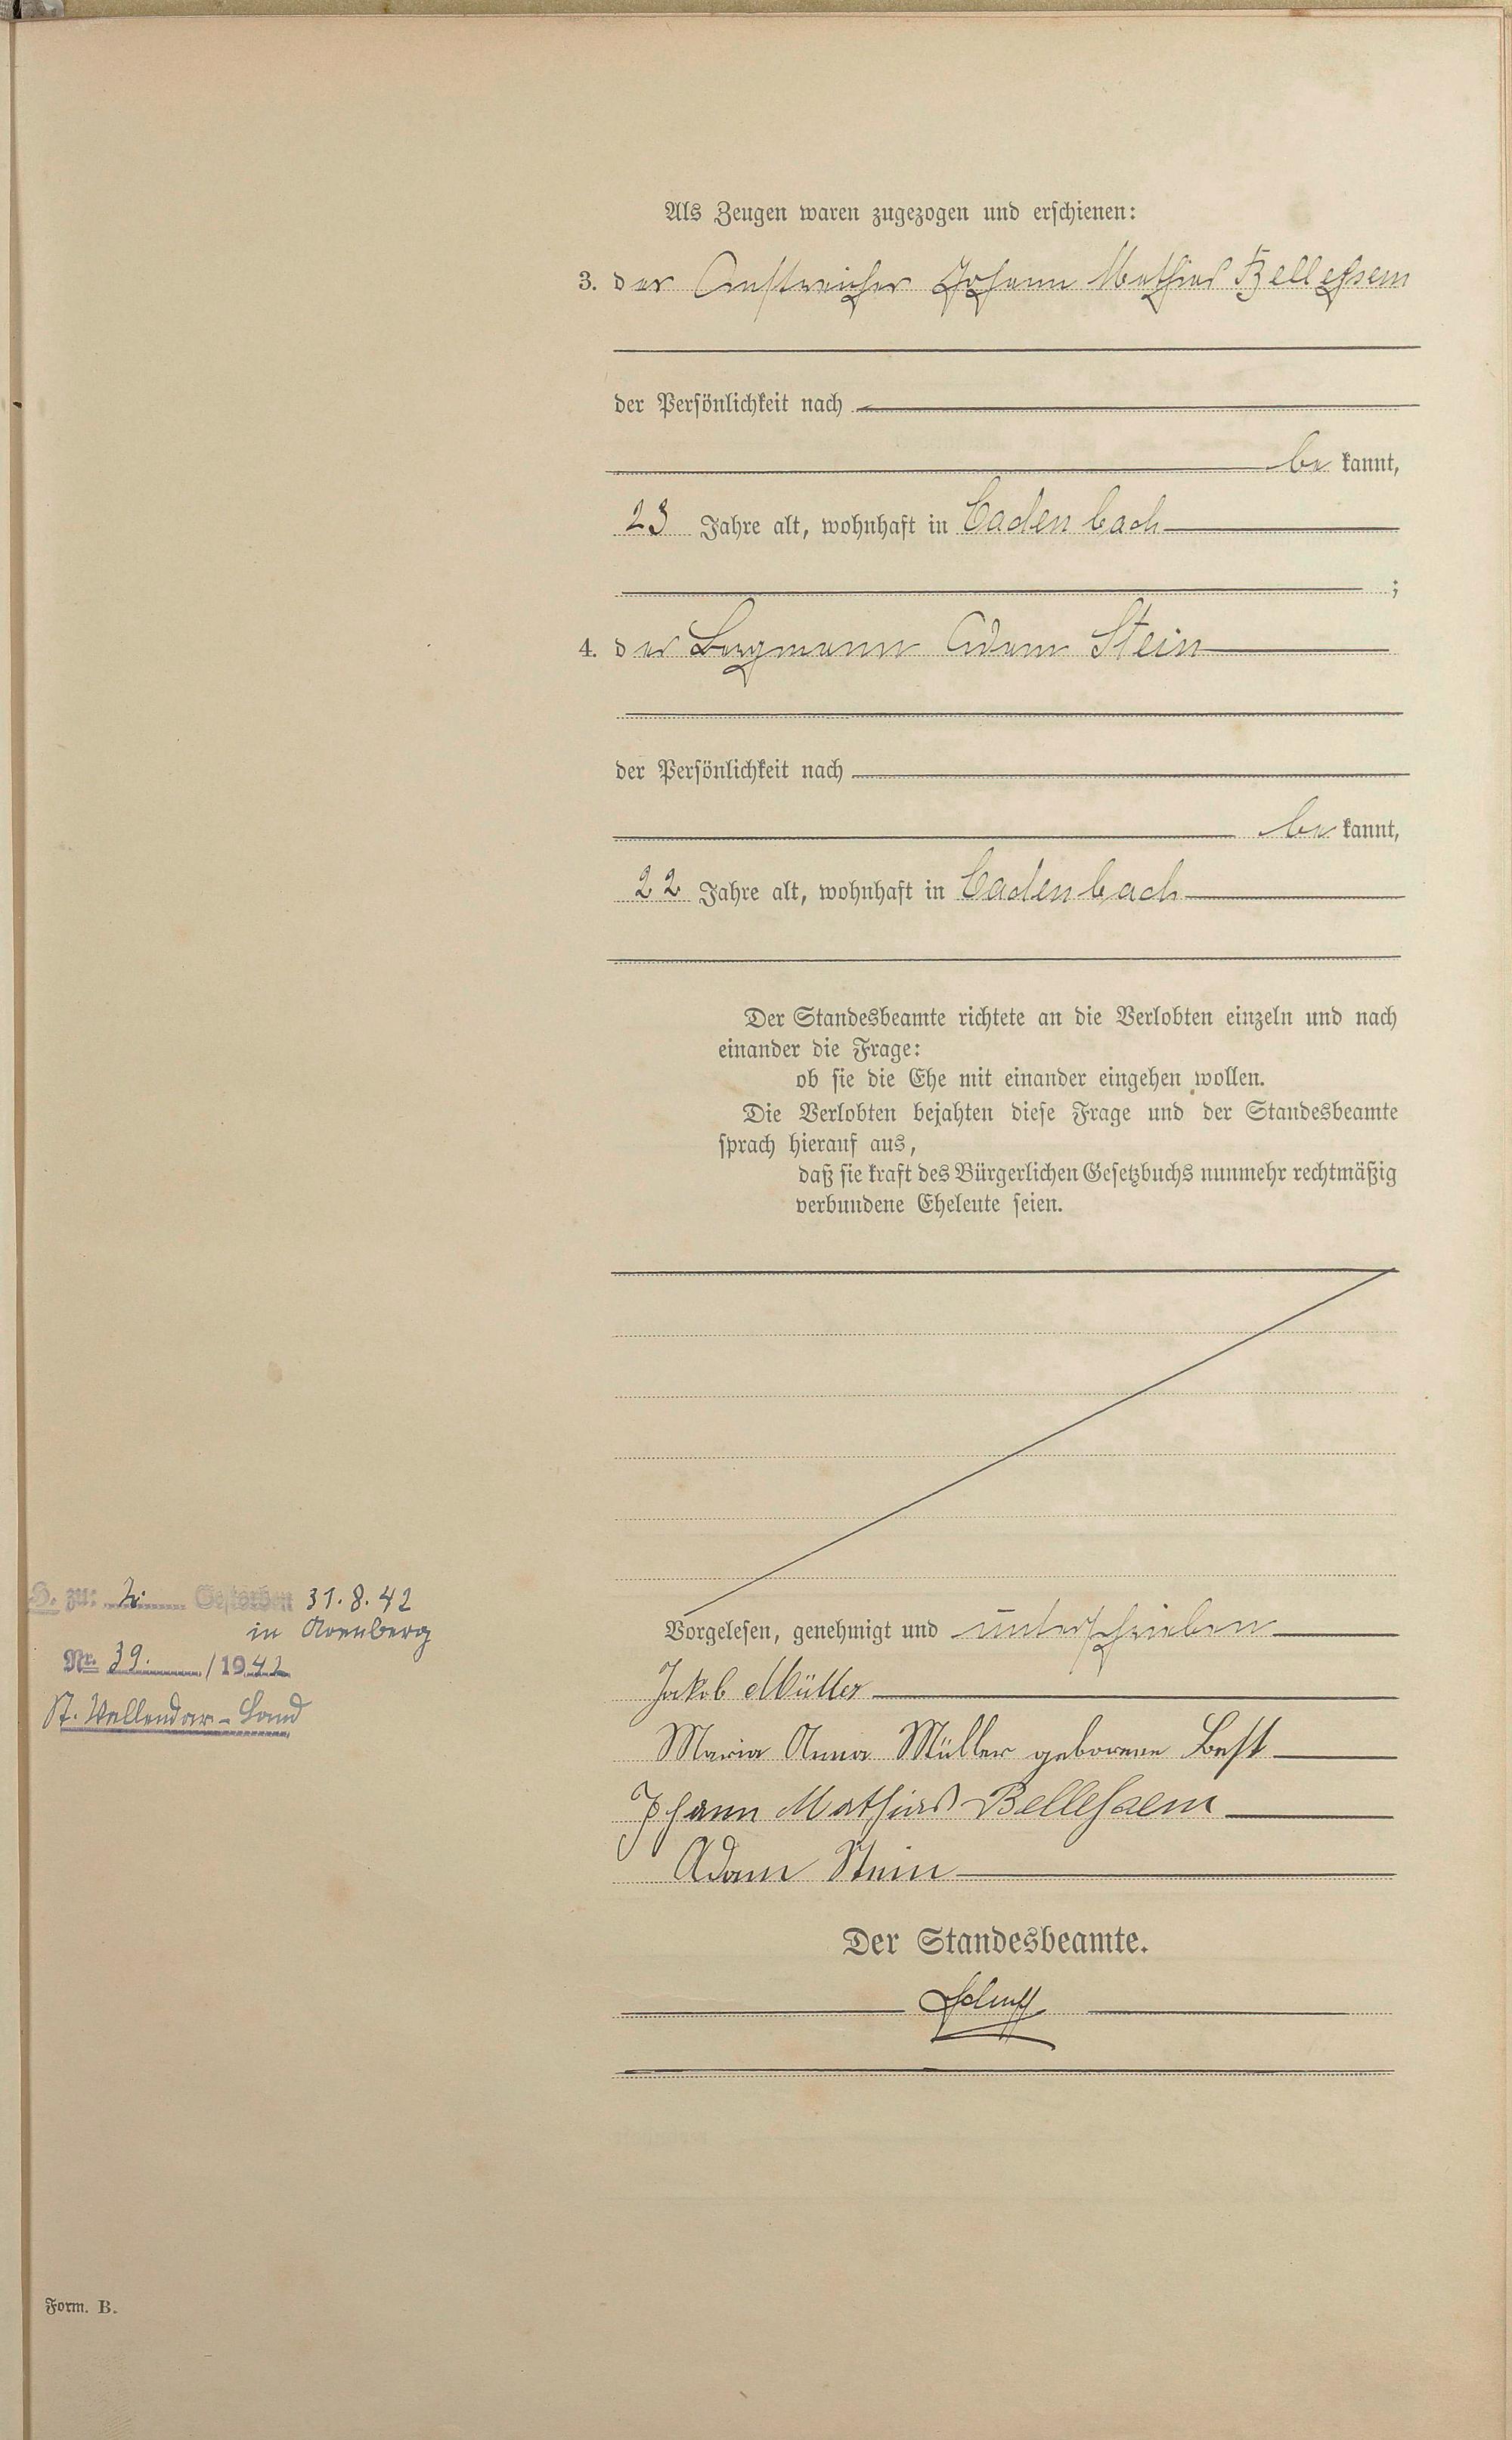 Als Zeugen waren zugezogen und erschienen:
3. der Anstreicher Johann Mathias Bellehsem
der Persönlichkeit nach
be kannt,
23 Jahre alt, wohnhaft in Cadenbach
;
4. der Bergmann Adam Stein
der Persönlichkeit nach
be kannt,
22 Jahre alt, wohnhaft in Cadenbach
Der Standesbeamte richtete an die Verlobten einzeln und nach
einander die Frage:
ob sie die Ehe mit einander eingehen wollen.
Die Verlobten bejahten diese Frage und der Standesbeamte
sprach hierauf aus,
daß sie kraft des Bürgerlichen Gesetzbuchs nunmehr rechtmäßig
verbundene Eheleute seien.
Vorgelesen, genehmigt und unterschrieben
Jakob Müller
Maria Anna Müller geborene Best
Johann Mathias
Adam Stein
Der Standesbeamte.
H. zu: Gestorben 31.8.42
in Arenberg
Nr. 39. /1942
St. Vallendar-Land
Form. B.